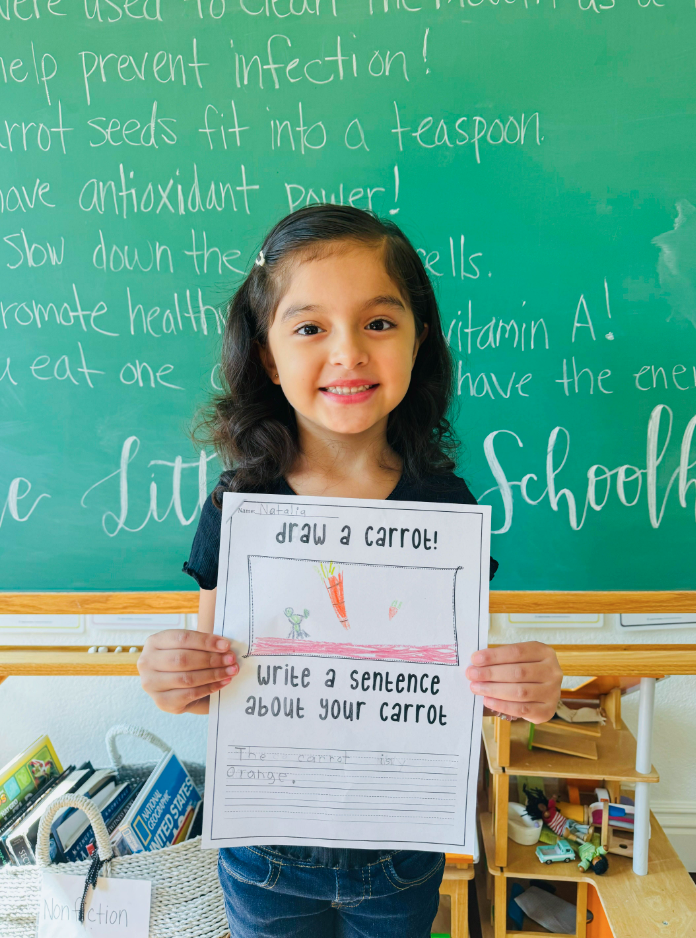 were used to clean the mouth as a
help prevent infection!
seeds fit into a teaspoon.
have antioxidant power!
slow down the
healthy vitamin A!
eat one have the
Little
Name: Natalia
draw a carrot!
write a sentence
about your carrot
The carrot is
orange.
NATIONAL
GEOGRAPHIC
UNITED
STATES
Nonfiction